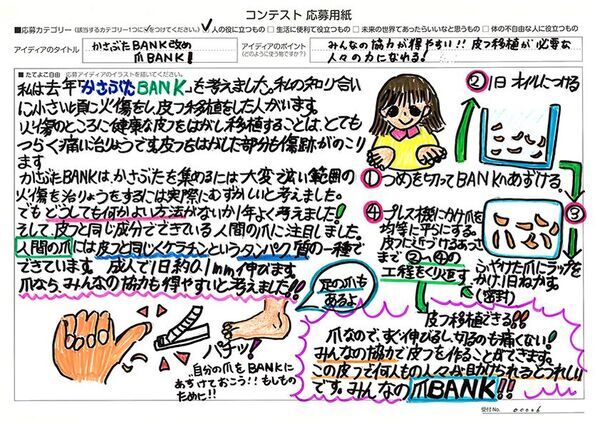 コンテスト 応募用紙
■応募カテゴリー(該当するカテゴリー1つに✓をつけてください。) ✓人の役に立つもの □生活に便利で役立つもの □未来の世界であったらいいなと思うもの □体の不自由な人に役立つもの
アイディアのタイトル
かさぶたBANK改め
爪BANK!
アイディアのポイント
(どのように使う物ですか?)
みんなの協力が得やすい!!皮フ移植が必要な
人々の力になれる!
■たてよこ自由 応募アイディアのイラストを描いてください。
私は去年「かさぶたBANK」を考えました。私の知り合い
に小さい頃に火傷をし、皮フ移植をした人がいます。
火傷のところに健康な皮フをはがし移植することは、とても
つらく痛い治りょうです。皮フをはがした部分も傷跡がのこり
ます
かさぶたBANKは、かさぶたを集めるには大変で広い範囲の
火傷を治りょうをするには実際にむずかしいと考えました。
でもどうしても何かよい方法がないか1年よく考えました!
そして、皮フと同じ成分でできている人間の爪に注目しました。
人間の爪には皮フと同じくケラチンというタンパク質の一種で
できています。成人で1日約0.1mm伸びます。
爪なら、みんなの協力も得やすいと考えました!!
足の爪も
あるよ
パチッ!
..自分の爪をBANKに
あずけておこう!!もしもの
ために!!
①つめを切ってBANKへあずける。
②1日オイルにつける
③
ふやけた爪にラップを
かけ1日ねかす。
(密封)
④プレス機にかけ爪を
均等に平らにする。
皮フに近づけるあつさ
まで②~④の
工程をくり返す。
皮フ移植できる!!
爪なので、すぐ伸びるし切るのも痛くない!
みんなの協力で皮フを作ることができます。
この皮フで何人もの人々が助けられるとうれしい
です。みんなの爪BANK!!
受付No. 00006